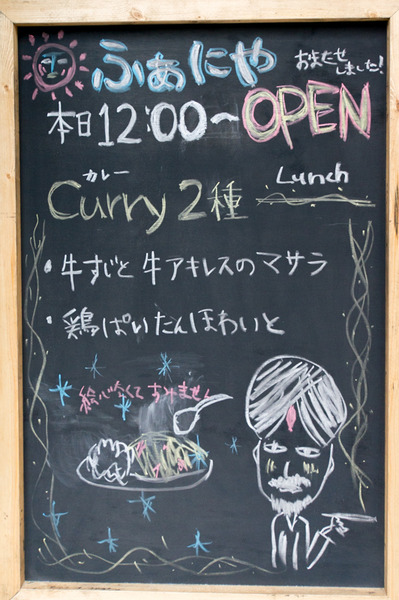 ふぁにや
おまたせ
しました!
本日12:00〜OPEN
カレー
Curry 2種
Lunch
・牛すじと牛アキレスのマサラ
・鶏ぱいたんほわいと
絵心なくてすみません